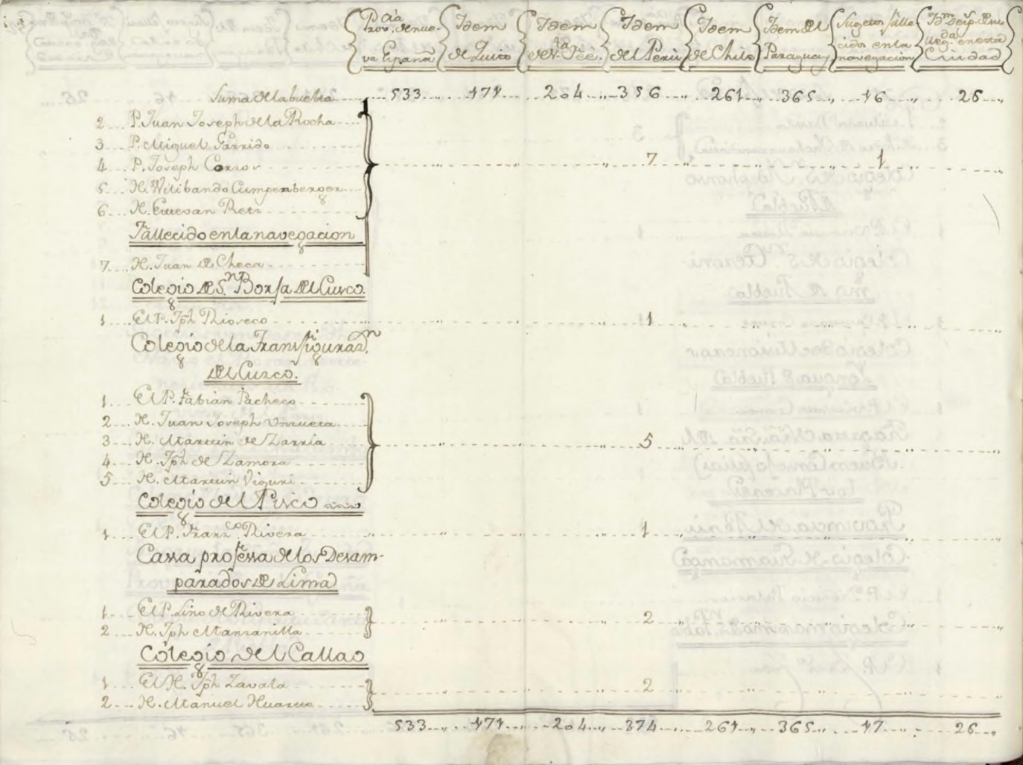 P.ª Prov.ª de nue-
va España
Idem
de Quito
Idem
de S.ta Feé.
Idem
del Perú
Idem
de Chile
Idem del
Paraguay
Sugetos falle
cidos en la
navegacion
Ciudad
Suma de la buelta 533 171 204 356 261 365 16 25
2 P. Juan Joseph de la Rocha
3 P. Miguel Garrido
4 P. Joseph 7 1
5 H. Wilibando Cumpenberger
6 H. Estevan Retz
Fallecido en la navegacion
7 H. Juan de Checa
Colegio de S.n Borja del Cuzco
1 El P. Jph Rioseco 1
Colegio de la Transfiguraz.n
del Cuzco.
1 El P. Fabian Pacheco
2 H. Juan Joseph Unzueta
3 H. Martin de Zarria 5
4 H. Jph de Zamora
5 H. Martin Viguri
Colegio del Pisco
1 El P. Franz.co Rivera 1
Cassa professa de los Desam-
parados de Lima
1 El P. Lino de Rivera 2
2 H. Jph Manzanilla
Colegio del Callao
1 El H. Jph Zavala 2
2 H. Manuel
533 171 204 374 261 365 17 25